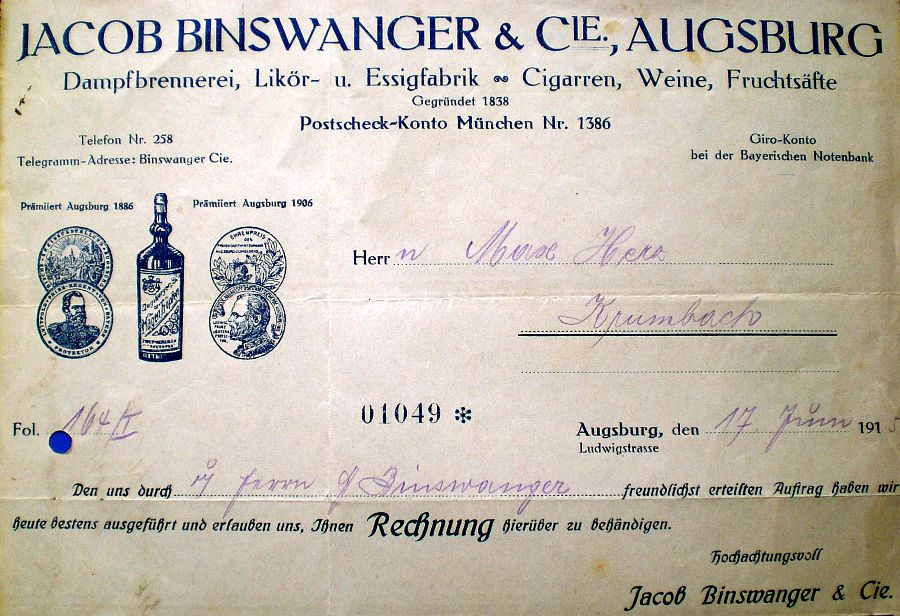 JACOB BINSWANGER & CIE., AUGSBURG
Dampfbrennerei, Likör- u. Essigfabrik ∾ Cigarren, Weine, Fruchtsäfte
Gegründet 1838
Postscheck-Konto München Nr. 1386
Telefon Nr. 258
Telegramm-Adresse: Binswanger Cie.
Giro-Konto
bei der Bayerischen Notenbank
Prämiiert Augsburg 1886
Prämiiert Augsburg 1906
EHRENPREIS
PROTEKTOR
Herrn Max Herz
Krumbach
Fol. 164/I
01049 *
Augsburg, den 17 Juni 1915
Ludwigstrasse
Den uns durch Herrn J Binswanger freundlichst erteilten Auftrag haben wir
heute bestens ausgeführt und erlauben uns, Ihnen Rechnung hierüber zu behändigen.
Hochachtungsvoll
Jacob Binswanger & Cie.